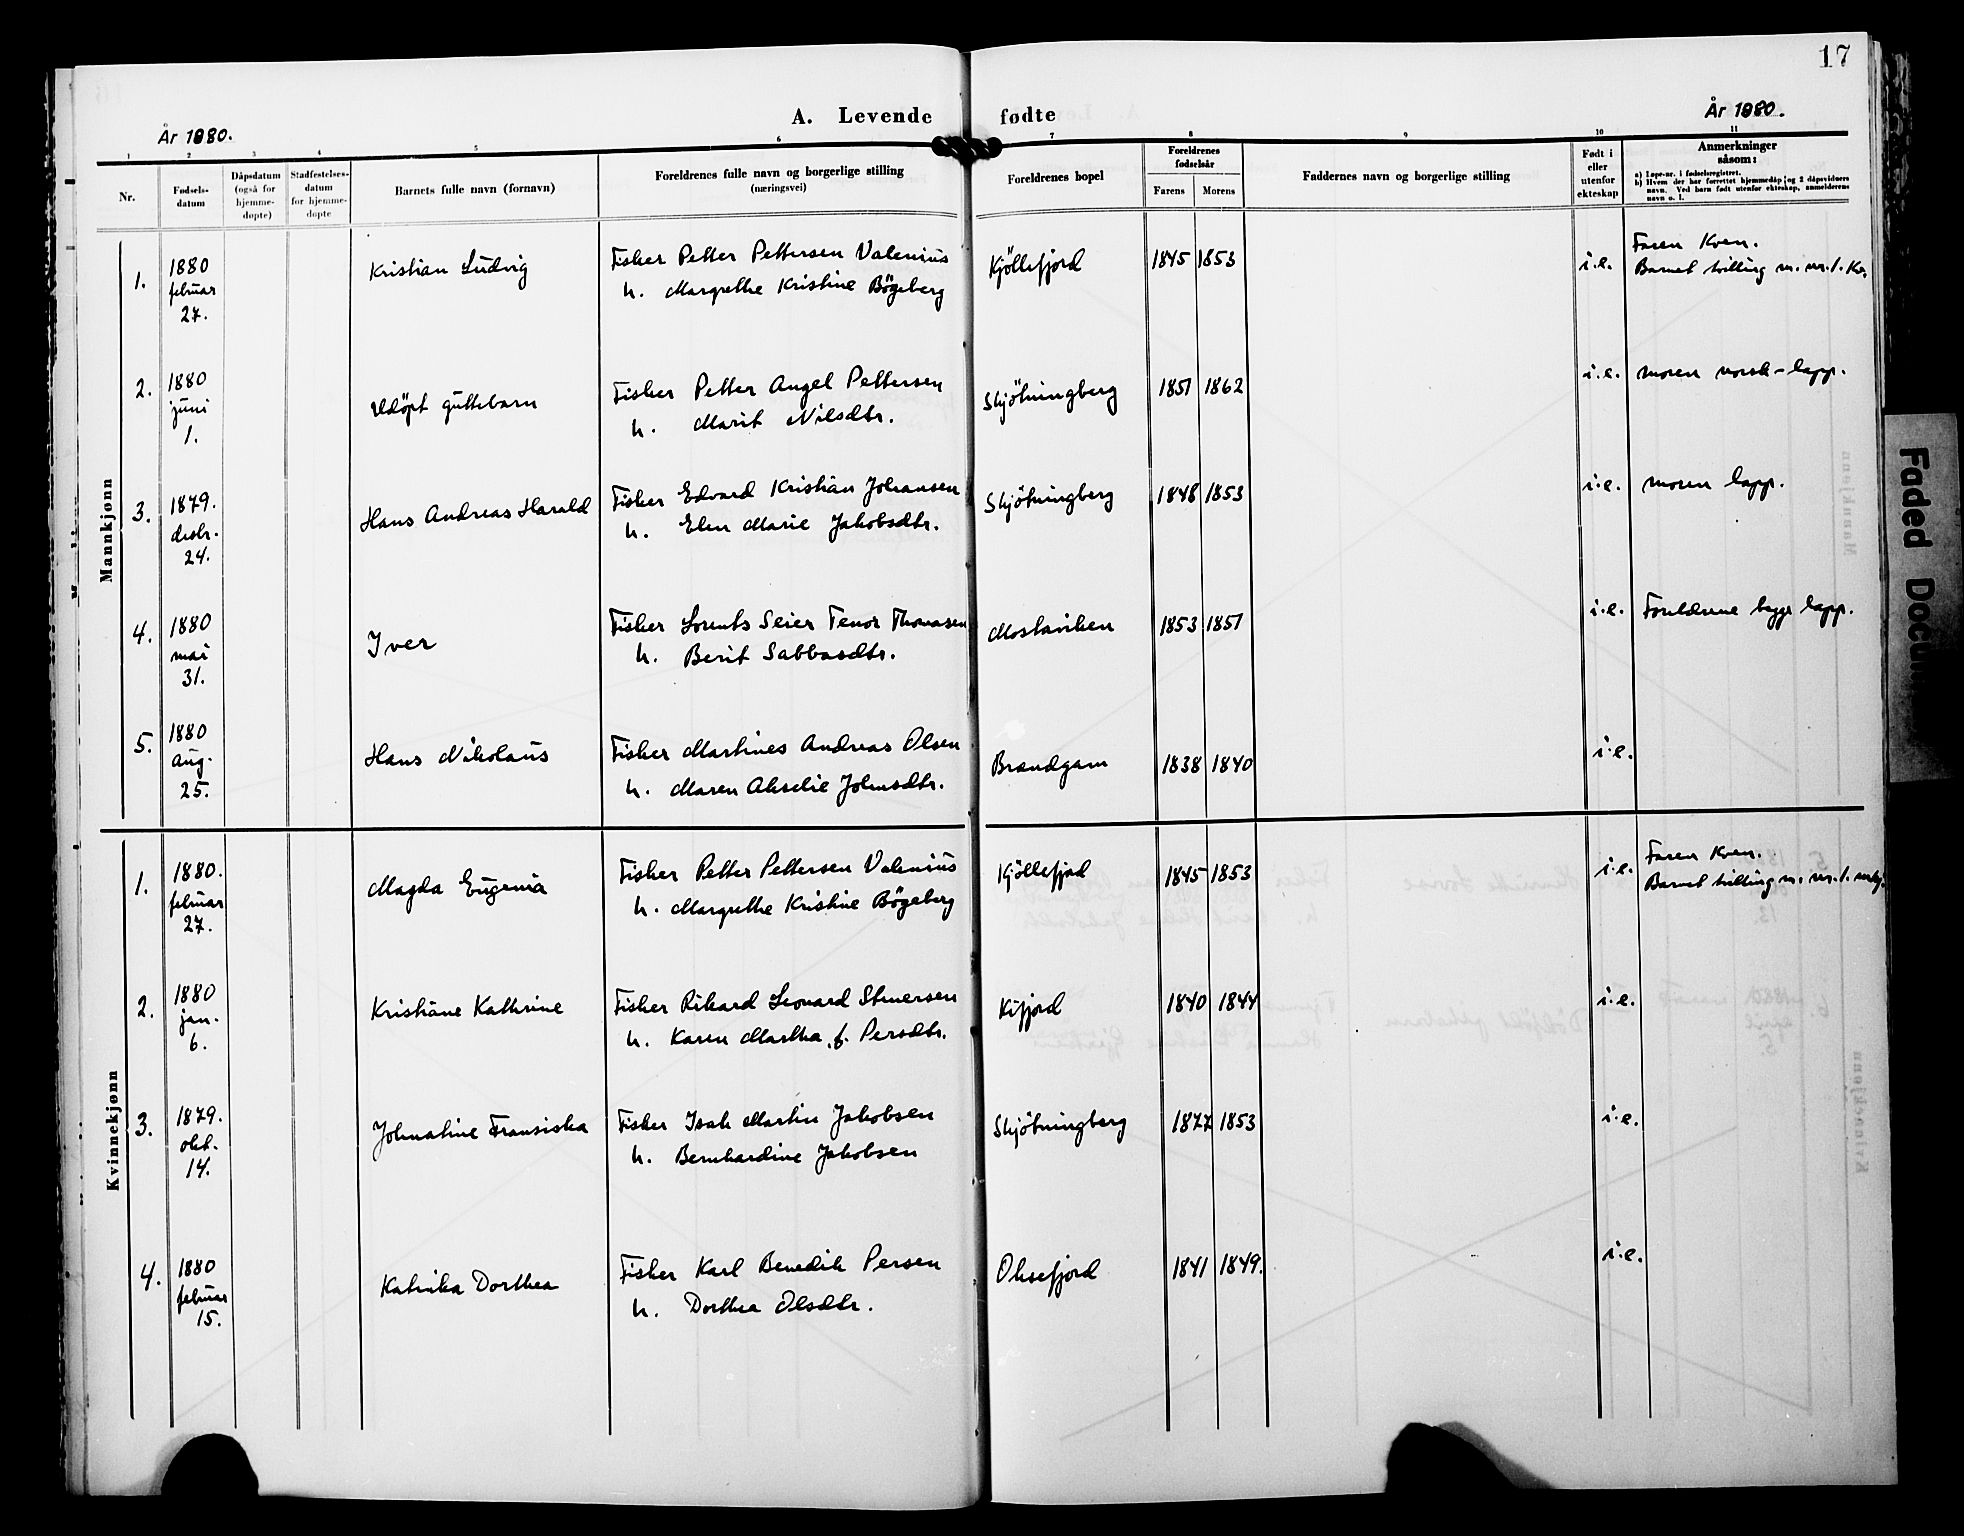 17
A. Levende fødte
År 1880.
År 1880.
1 2 3 4 5 6 7 8 9 10 11
Nr.
Fødsels-
datum
Dåpsdatum
(også for
hjemme-
døpte)
Stadfestelses-
datum
for hjemme-
døpte
Barnets fulle navn (fornavn)
Foreldrenes fulle navn og borgerlige stilling
(næringsvei)
Foreldrenes bopel
Foreldrenes
fødselsår
Farens Morens
Faddernes navn og borgerlige stilling
Født i
eller
utenfor
ekteskap
Anmerkninger
såsom:
a) Løpe-nr. i fødselsregistret.
b) Hvem der har forrettet hjemmedåp og 2 dåpsvidners
navn. Ved barn født utenfor ekteskap, anmelderens
navn o. l.
Mannkjønn
1.
1880
februar
27.
Kristian Ludvig
Fisker Petter Pettersen Valenius
h. Margrethe Kristine Bögeberg
Kjöllefjord
1845 1853
i.e.
Faren Kven.
Barnet tvilling m. nr. 1. Kv.
2.
1880
juni
1.
Udöpt guttebarn
Fisker Petter Angel Pettersen
h. Marit Nilsdtr.
Skjötningberg
1851 1862
i.e.
moren norsk-lapp.
3.
1879.
desbr.
24.
Hans Andreas Harald
Fisker Edvard Kristian Johansen
h. Elen Marie Jakobsdtr.
Skjötningberg
1848 1853
i.e.
moren lapp.
4.
1880
mai
31.
Iver
Fisker Lorents Seier Tenor Thomasen
h. Berit Sabbasdtr.
Mostaviken
1853 1851
i.e.
Foreldrene begge lapp.
5.
1880
aug.
25.
Hans Nikolaus
Fisker Martines Andreas Olsen
h. Maren Akselie Johnsdtr.
Brandgam
1838 1840
i.e.
Kvinnekjønn
1.
1880.
februar
27.
Magda Eugenia
Fisker Petter Pettersen Valenius
h. Margrethe Kristine Bögeberg
Kjöllefjord
1845 1853
i.e.
Faren Kven.
Barnet tvilling m. nr. 1.
2.
1880
jan.
6.
Kristiane Kathrine
Fisker Rikard Leonard Stuersen
h. Karen Martha f. Persdtr.
Kifjord
1840 1844
i.e.
3.
1879.
okt.
14.
Johnatine Fransiska
Fisker Isak Martin Jakobsen
h. Bernhardine Jakobsen
Skjötningberg
1877 1853
i.e.
4.
1880
februar
15.
Katrika Dorthea
Fisker Karl Benedik Persen
h. Dorthea Olsdtr.
Oksefjord
1841 1849.
i.e.
Faded Docum